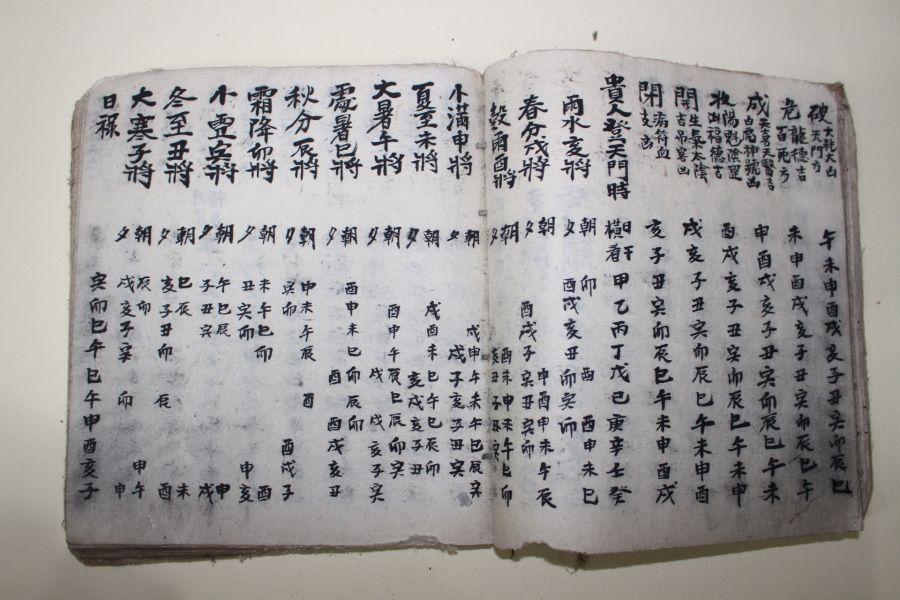 破 大耗大凶 天門方 午未申酉戌亥子丑寅卯辰巳
危 龍德吉 未申酉戌亥子丑寅卯辰巳午
成 天喜天醫吉 白虎神號凶 申酉戌亥子丑寅卯辰巳午未
收 陽魁陰罡 凶福德吉 酉戌亥子丑寅卯辰巳午未申
開 生氣太陰 吉吊客凶 戌亥子丑寅卯辰巳午未申酉
閉 病符血支凶 亥子丑寅卯辰巳午未申酉戌
貴人登天門時 日干橫看 甲乙丙丁戊己庚辛壬癸
雨水亥將 朝 卯 酉 酉申未巳
夕 酉戌亥丑卯寅卯
春分戌將 朝 申酉申未午辰
夕 酉戌子寅丑寅卯
穀雨酉將 朝 酉未申未午巳卯
夕 亥丑子丑寅
小滿申將 朝 戌申午未午巳辰寅
夕 戌子亥子丑寅
夏至未將 朝 戌酉未巳午巳辰卯
夕 亥戌亥子丑
大暑午將 朝 酉申午辰巳辰卯寅
夕 戌 戌亥子寅
處暑巳將 朝 酉申未巳卯辰卯
夕 酉 酉戌亥丑
秋分辰將 朝 申未午辰 酉
夕 寅卯 酉戌子
霜降卯將 朝 未午巳卯 酉
夕 丑寅卯 申亥
小雪寅將 朝 午巳辰 申
夕 子丑寅 戌
冬至丑將 朝 巳辰 未
夕 亥子丑卯 辰 酉
大寒子將 朝 辰卯 申午
夕 戌亥子寅 卯 申
日祿 寅卯巳午巳午申酉亥子